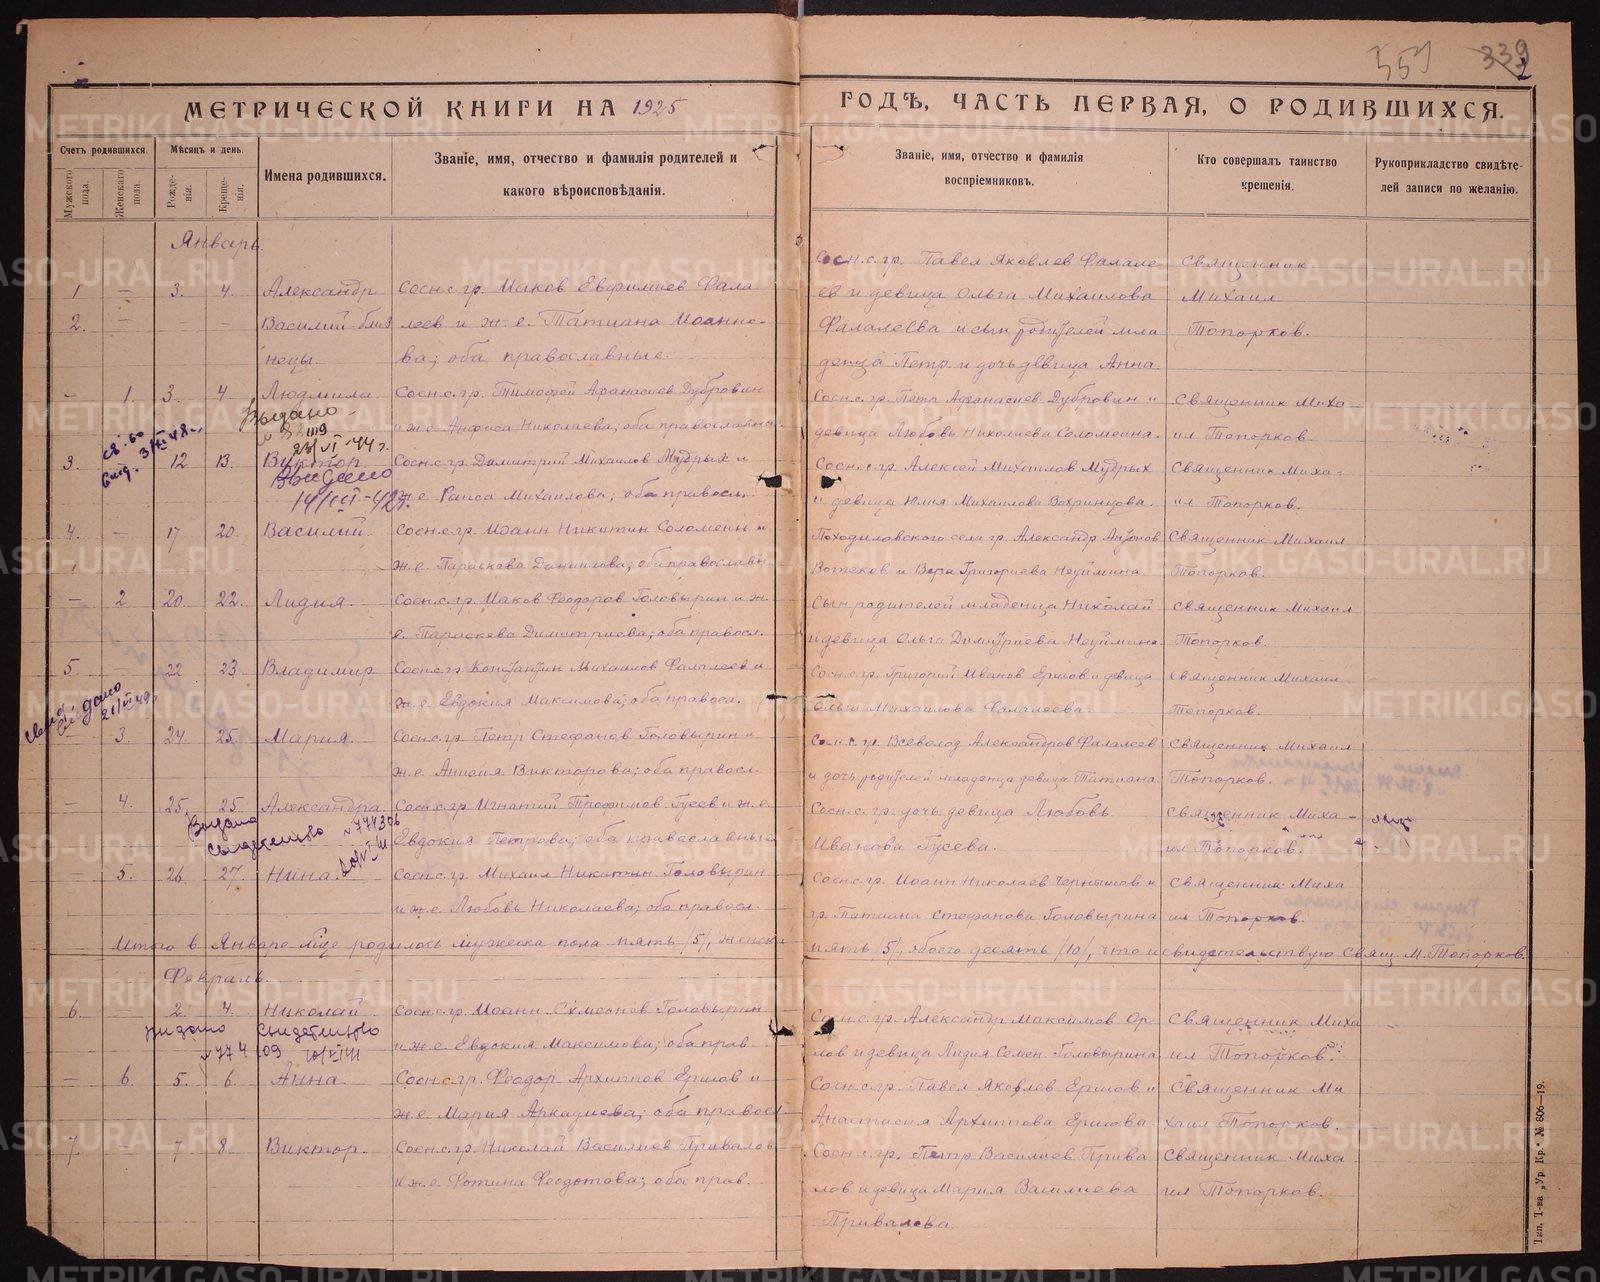 559 339
2
МЕТРИЧЕСКОЙ КНИГИ НА 1925 ГОДЪ, ЧАСТЬ ПЕРВАЯ, О РОДИВШИХСЯ.
Счетъ родившихся. Мѣсяцъ и день. Имена родившихся. Званіе, имя, отчество и фамилія родителей и какого вѣроисповѣданія.
Мужского пола. Женскаго пола. Рожденія. Крещенія.
Званіе, имя, отчество и фамилія воспріемниковъ. Кто совершалъ таинство крещенія. Рукоприкладство свидѣтелей записи по желанію.
Январь.
1 — 3. 4. Александр Сосн. с. гр. Иаков Евфимиев Фала
2. — — — Василий-близ леев и ж. е. Татиана Иоанно-
нецы. ва; оба православные.
Сосн. с. гр. Павел Яковлев Фалале- Священник
ев и девица Ольга Михаилова Михаил
Фалалеева и сын родителей мла Топорков.
денца Петр. и дочь девица Анна.
— 1. 3. 4. Людмила Сосн. с. гр. Тимофей Афанасиев Дубровин
и ж. е. Анфиса Николаева; оба православн.
Сосн. с. гр. Петр Афанасиев Дубровин и Священник Миха-
девица Любовь Николаева Соломеина. ил Топорков.
Выдано
23/VI-44 г.
3. 12 13. Виктор Сосн. с. гр. Димитрий Михаилов Мудрых и
ж. е. Раиса Михаилова; оба правосл.
Выдано
Сосн. с. гр. Алексей Михаилов Мудрых Священник Миха-
и девица Юлия Михаилова Вохринцова. ил Топорков.
4. — 17 20. Василий. Сосн. с. гр. Иоанн Никитин Соломеин и
ж. е. Параскева Даниилова; оба православн.
Походиловского села гр. Александр Антонов Священник Михаил
и Вера Григориева Неуймина Топорков.
— 2 20 22. Лидия. Сосн. с. гр. Иаков Феодоров Головырин и ж.
е. Параскева Димитриева; оба правосл.
Сын родителей младенца Николай Священник Михаил
и девица Ольга Димитриева Неуймина Топорков.
5 — 22 23. Владимир Сосн. с. гр. Константин Михаилов Фалалеев и
ж. е. Евдокия Максимова; оба правосл.
Сосн. с. гр. Григорий Иванов Ершов и девица Священник Михаил
Ольга Михаилова Фалалеева. Топорков.
— 3. 24. 25. Мария. Сосн. с. гр. Петр Стефанов Головырин и
ж. е. Анисия Викторова; оба правосл.
Сосн. с. гр. Всеволод Александров Фалалеев Священник Михаил
и дочь родителей младенца девица Татиана Топорков.
— 4. 25. 25. Александра. Сосн. с. гр. Игнатий Трофимов Гусев и ж. е.
Евдокия Петрова; оба православные
Выдано
Свидетельство
Сосн. с. гр. дочь девица Любовь Священник Миха-
Иванова Гусева. ил Топорков.
— 5. 26. 27. Нина. Сосн. с. гр. Михаил Никитин Головырин
и ж. е. Любовь Николаева; оба правосл.
Сосн. с. гр. Иоанн Николаев Чернышов и Священник Миха
гр. Татиана Стефанова Головырина ил Топорков.
Итого в Январе м-це родилось мужеска пола пять /5/, женска
пять /5/, обоего десять /10/, что и свидетельствую Свящ. М. Топорков.
Февраль.
6. — 2. 4. Николай Сосн. с. гр. Иоанн Симеонов Головырин
и ж. е. Евдокия Максимова; оба прав.
Выдано Свидетельство
Сосн. с. гр. Александр Максимов Ор Священник Миха
лов и девица Лидия Семен. Головырина ил Топорков.
— 6. 5. 6. Анна. Сосн. с. гр. Феодор Архиппов Ершов и
ж. е. Мария Аркадиева; оба правосл.
Сосн. с. гр. Павел Яковлев Ершов и Священник Ми
Анастасия Архиппова Ершова. хаил Топорков.
7. — 7 8. Виктор. Сосн. с. гр. Николай Василиев Привалов
и ж. е. Фотина Феодотова; оба прав.
Сосн. с. гр. Петр Василиев Прива Священник Миха
лов и девица Мария Василиева ил Топорков.
Привалова.
Тип. Т-ва „Ур. Кр." № 606—19.
METRIKI.GASO-URAL.RU